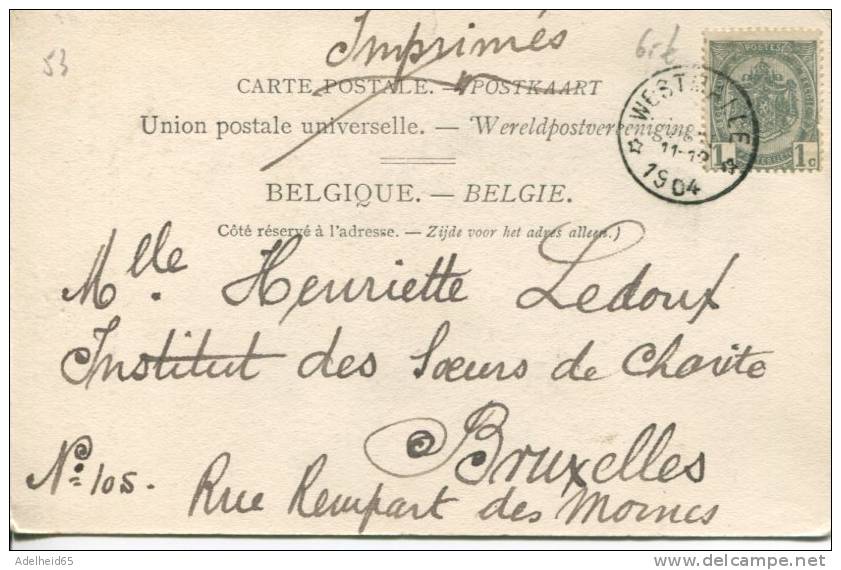 53
Imprimés
CARTE POSTALE. — POSTKAART
Union postale universelle. — Wereldpostvereeniging
BELGIQUE. — BELGIE.
Côté réservé à l'adresse. — Zijde voor het adres alleen.)
POSTES
1 1c
WESTMALLE
11-12
1904
Mlle. Henriette Ledoux
Institut des Sœurs de Charite
Bruxelles
No 105.
Rue Rempart des Moines
Adelheid65
delcampe.net